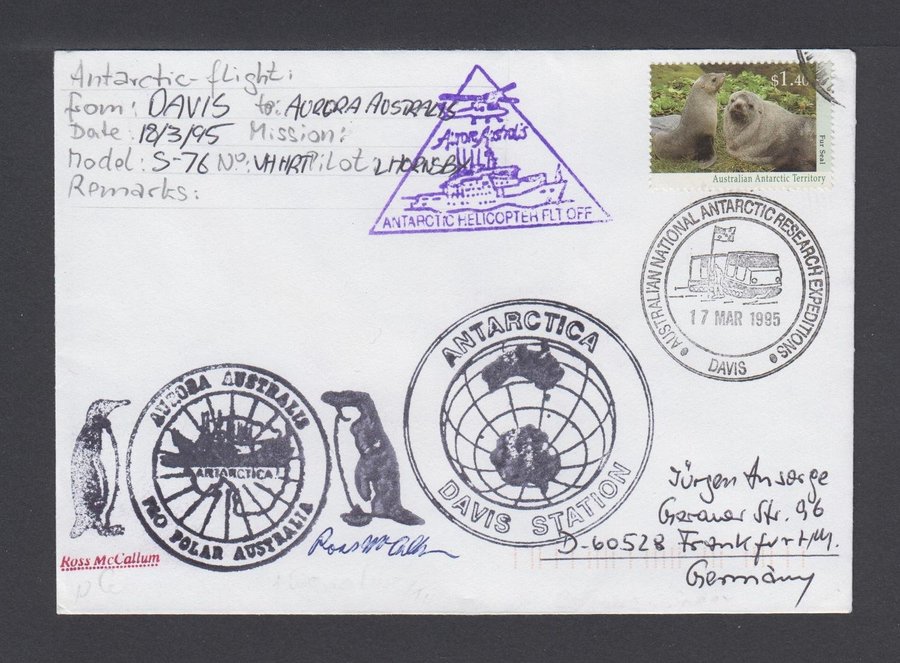 Antarctic-flight:
from: DAVIS to: AURORA AUSTRALIS
Date: 18/3/95 Mission:
Model: S-76 No: VHHRT Pilot: L HORNSBY
Remarks:
Aurora Australis
ANTARCTIC HELICOPTER FLT OFF
$1.40
Fur Seal
Australian Antarctic Territory
AUSTRALIAN NATIONAL ANTARCTIC RESEARCH EXPEDITIONS
17 MAR 1995
DAVIS
ANTARCTICA
DAVIS STATION
AURORA AUSTRALIS
ANTARCTICA
P&O POLAR AUSTRALIA
Ross McCallum
Ross McCallum
Jürgen Ansorge
Geraer Str. 96
D-60528 Frankfurt/M.
Germany